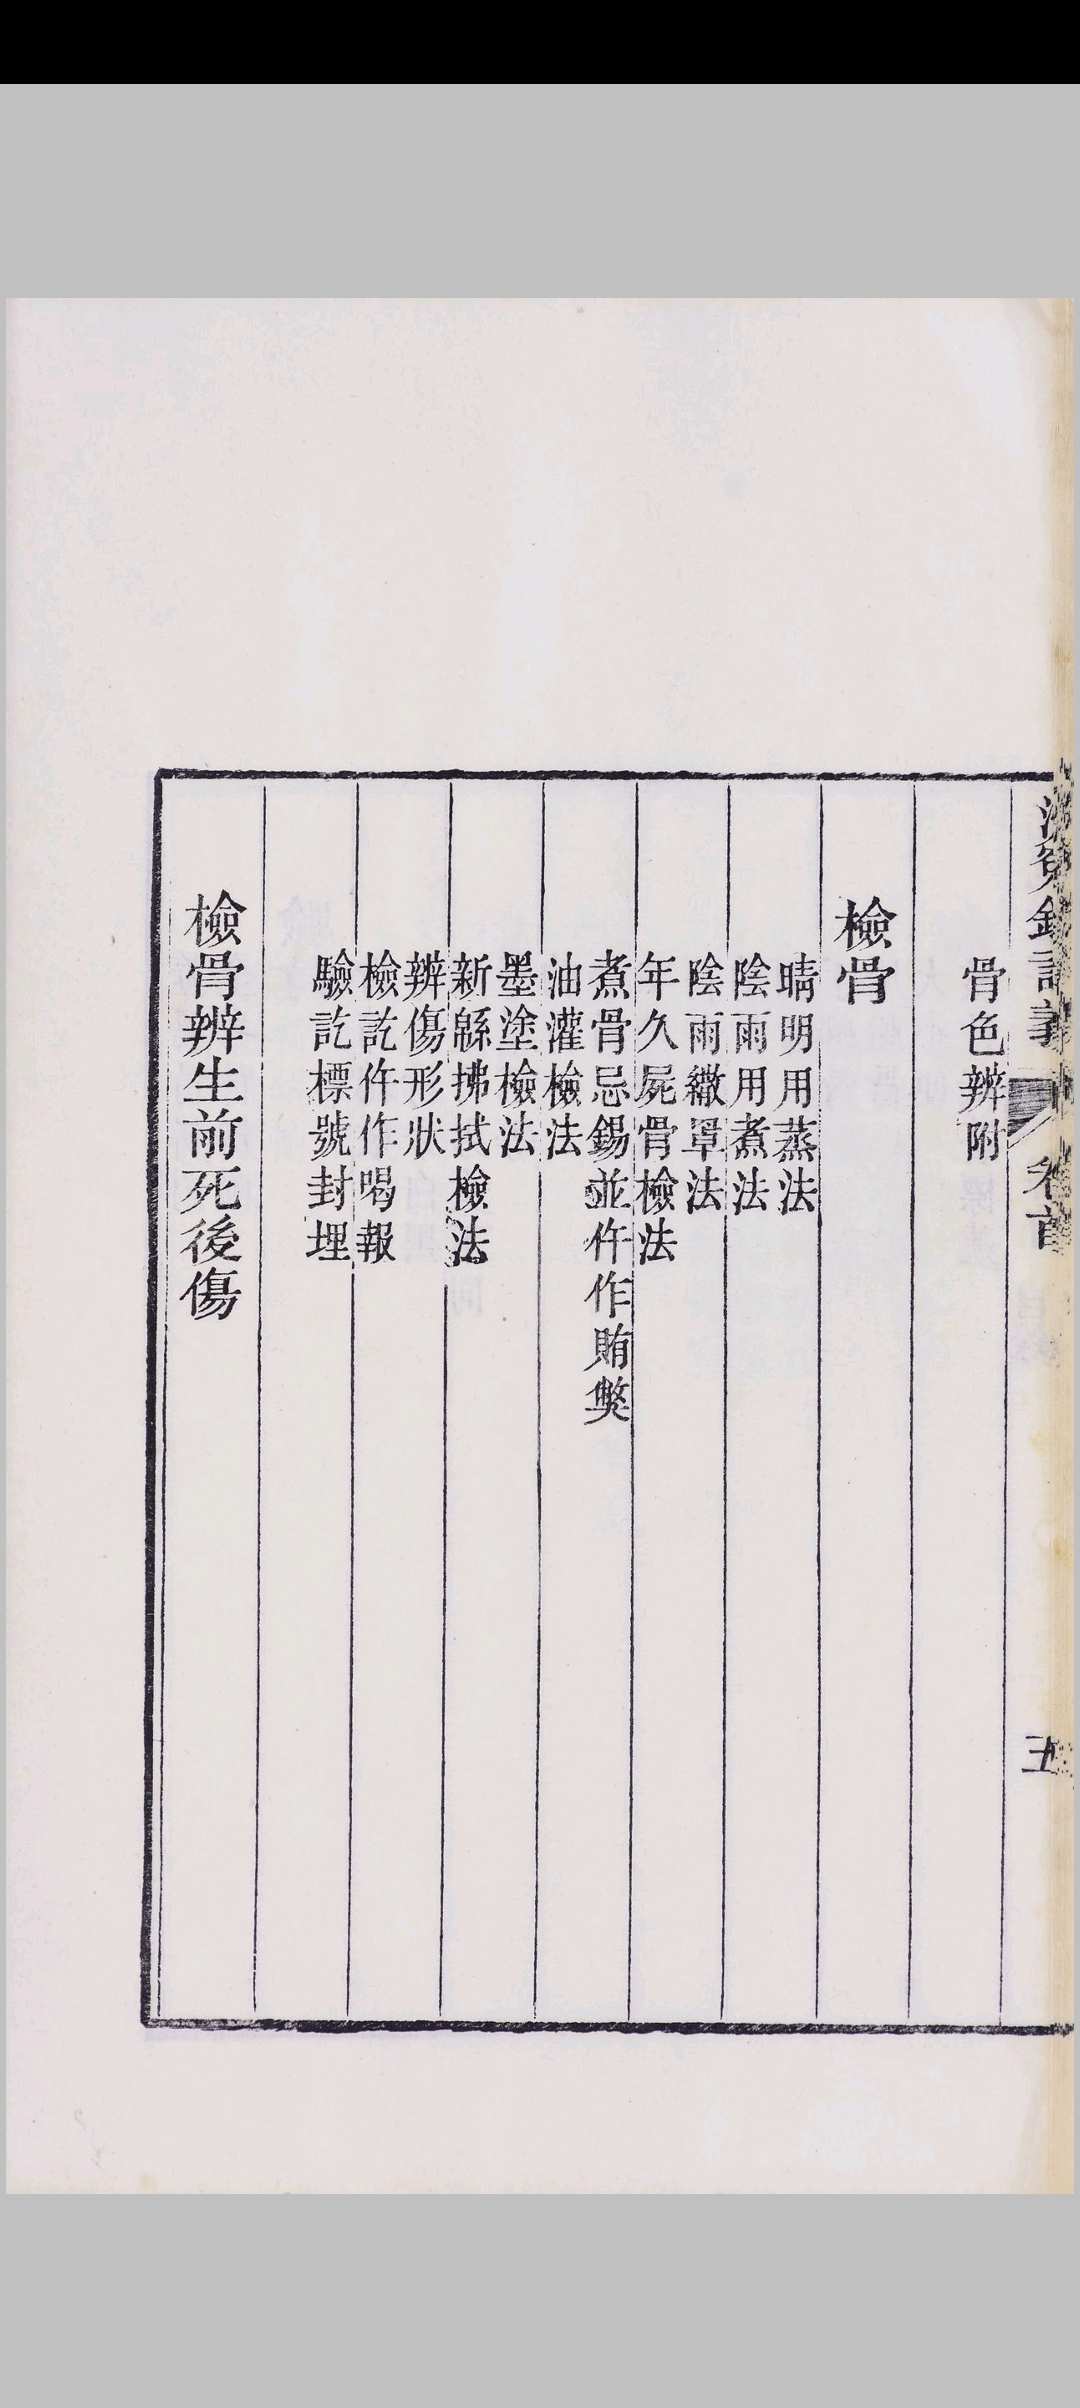 洗冤錄詳義 卷首
五
骨色辨附
檢骨
晴明用蒸法
陰雨用煮法
陰雨繖罩法
年久屍骨檢法
煮骨忌錫並仵作賄獘
油灌檢法
墨塗檢法
新緜拂拭檢法
辨傷形狀
檢訖仵作喝報
驗訖標號封埋
檢骨辨生前死後傷